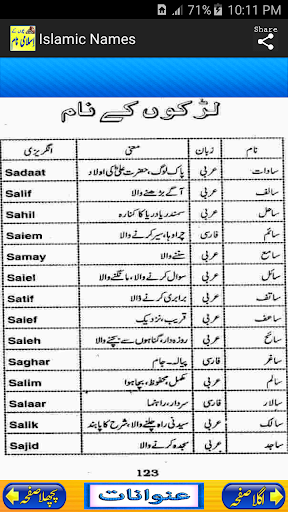 10:11 PM
اسلامی نام
Islamic Names
Share
لڑکوں کے نام
نام زبان معنی انگریزی
سادات عربی پاک لوگ، حضرت علیؓ کی اولاد Sadaat
سالف عربی آگے بڑھنے والا Salif
ساحل عربی سمندر یا دریا کا کنارہ Sahil
سائم فارسی چرواہا، سیر کرنے والا Saiem
سامع عربی سننے والا Samay
سائل عربی سوال کرنے والا، مانگنے والا Saiel
ساتف عربی برابری کرنے والا Satif
ساعف عربی قریب، نزدیک Saief
سائح عربی روزہ دار، گناہوں سے بچنے والا Saieh
ساغر فارسی پیالہ۔ جام Saghar
سالم عربی مکمل، محفوظ، بچا ہوا Salim
سالار فارسی سردار، راہنما Salaar
سالک عربی سیدھی راہ چلنے والا، شرح کا پابند Salik
ساجد عربی سجدہ کرنے والا Sajid
123
اگلا صفحہ
عنوانات
پچھلا صفحہ